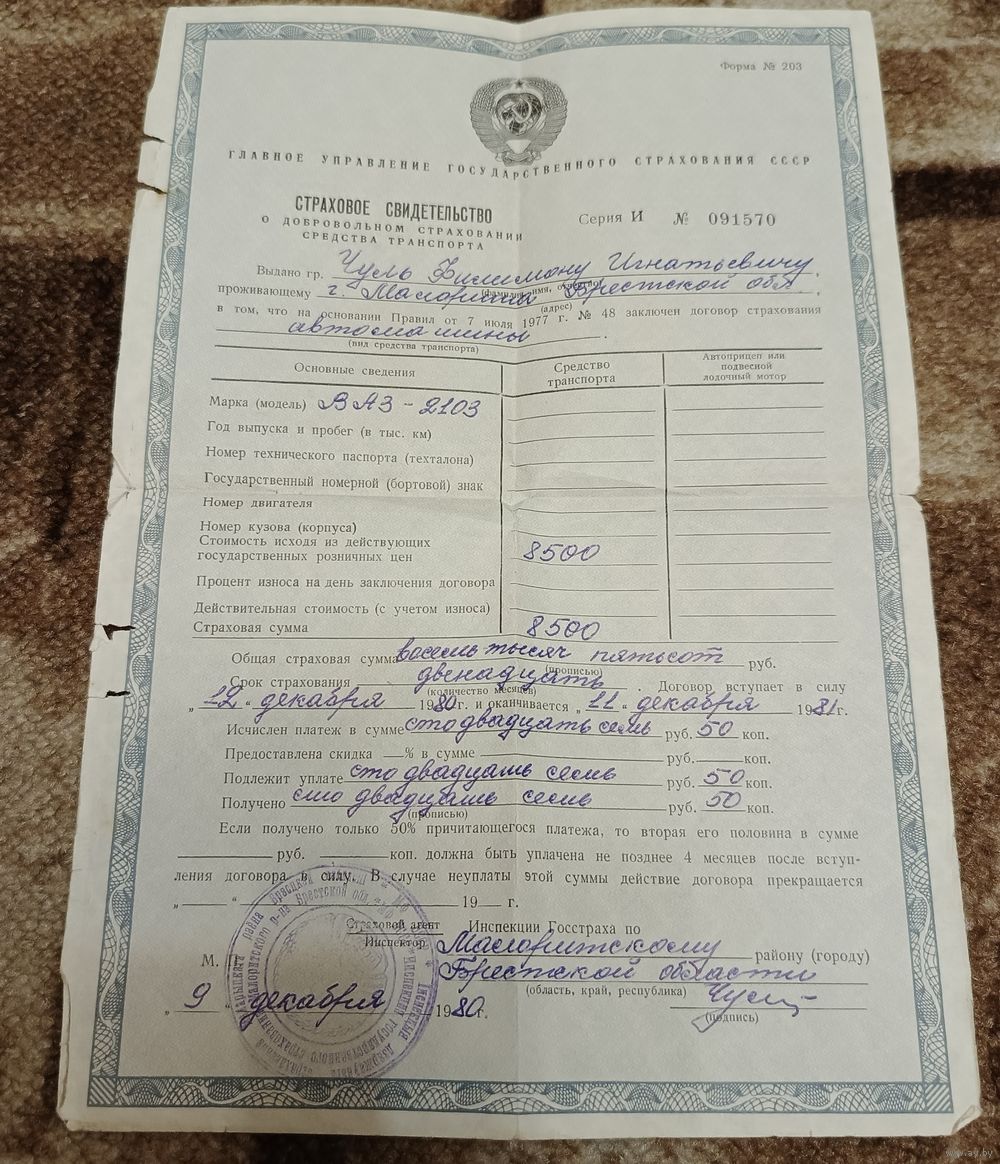 Форма № 203
ГЛАВНОЕ УПРАВЛЕНИЕ ГОСУДАРСТВЕННОГО СТРАХОВАНИЯ СССР
СТРАХОВОЕ СВИДЕТЕЛЬСТВО
О ДОБРОВОЛЬНОМ СТРАХОВАНИИ
СРЕДСТВА ТРАНСПОРТА
Серия И № 091570
Выдано гр. Чуль Филимону Игнатьевичу
(фамилия, имя, отчество)
проживающему г. Малорита Брестской обл.
(адрес)
в том, что на основании Правил от 7 июля 1977 г. № 48 заключен договор страхования
автомашины.
(вид средства транспорта)
Основные сведения Средство транспорта Автоприцеп или подвесной лодочный мотор
Марка (модель) ВАЗ-2103
Год выпуска и пробег (в тыс. км)
Номер технического паспорта (техталона)
Государственный номерной (бортовой) знак
Номер двигателя
Номер кузова (корпуса)
Стоимость исходя из действующих
государственных розничных цен 8500
Процент износа на день заключения договора
Действительная стоимость (с учетом износа)
Страховая сумма 8500
Общая страховая сумма восемь тысяч пятьсот руб.
(прописью)
Срок страхования двенадцать. Договор вступает в силу
(количество месяцев)
„12“ декабря 1980г. и оканчивается „11“ декабря 1981г.
Исчислен платеж в сумме сто двадцать семь руб. 50 коп.
Предоставлена скидка —% в сумме руб. коп.
Подлежит уплате сто двадцать семь руб. 50 коп.
Получено сто двадцать семь руб. 50 коп.
(прописью)
Если получено только 50% причитающегося платежа, то вторая его половина в сумме
руб. коп. должна быть уплачена не позднее 4 месяцев после вступ-
ления договора в силу. В случае неуплаты этой суммы действие договора прекращается
„ “ 19 г.
Страховой агент
Инспектор Инспекции Госстраха по
Малоритскому району (городу)
М.
Брестской области
(область, край, республика)
„9“ декабря 1980г.
(подпись)
www.ay.by